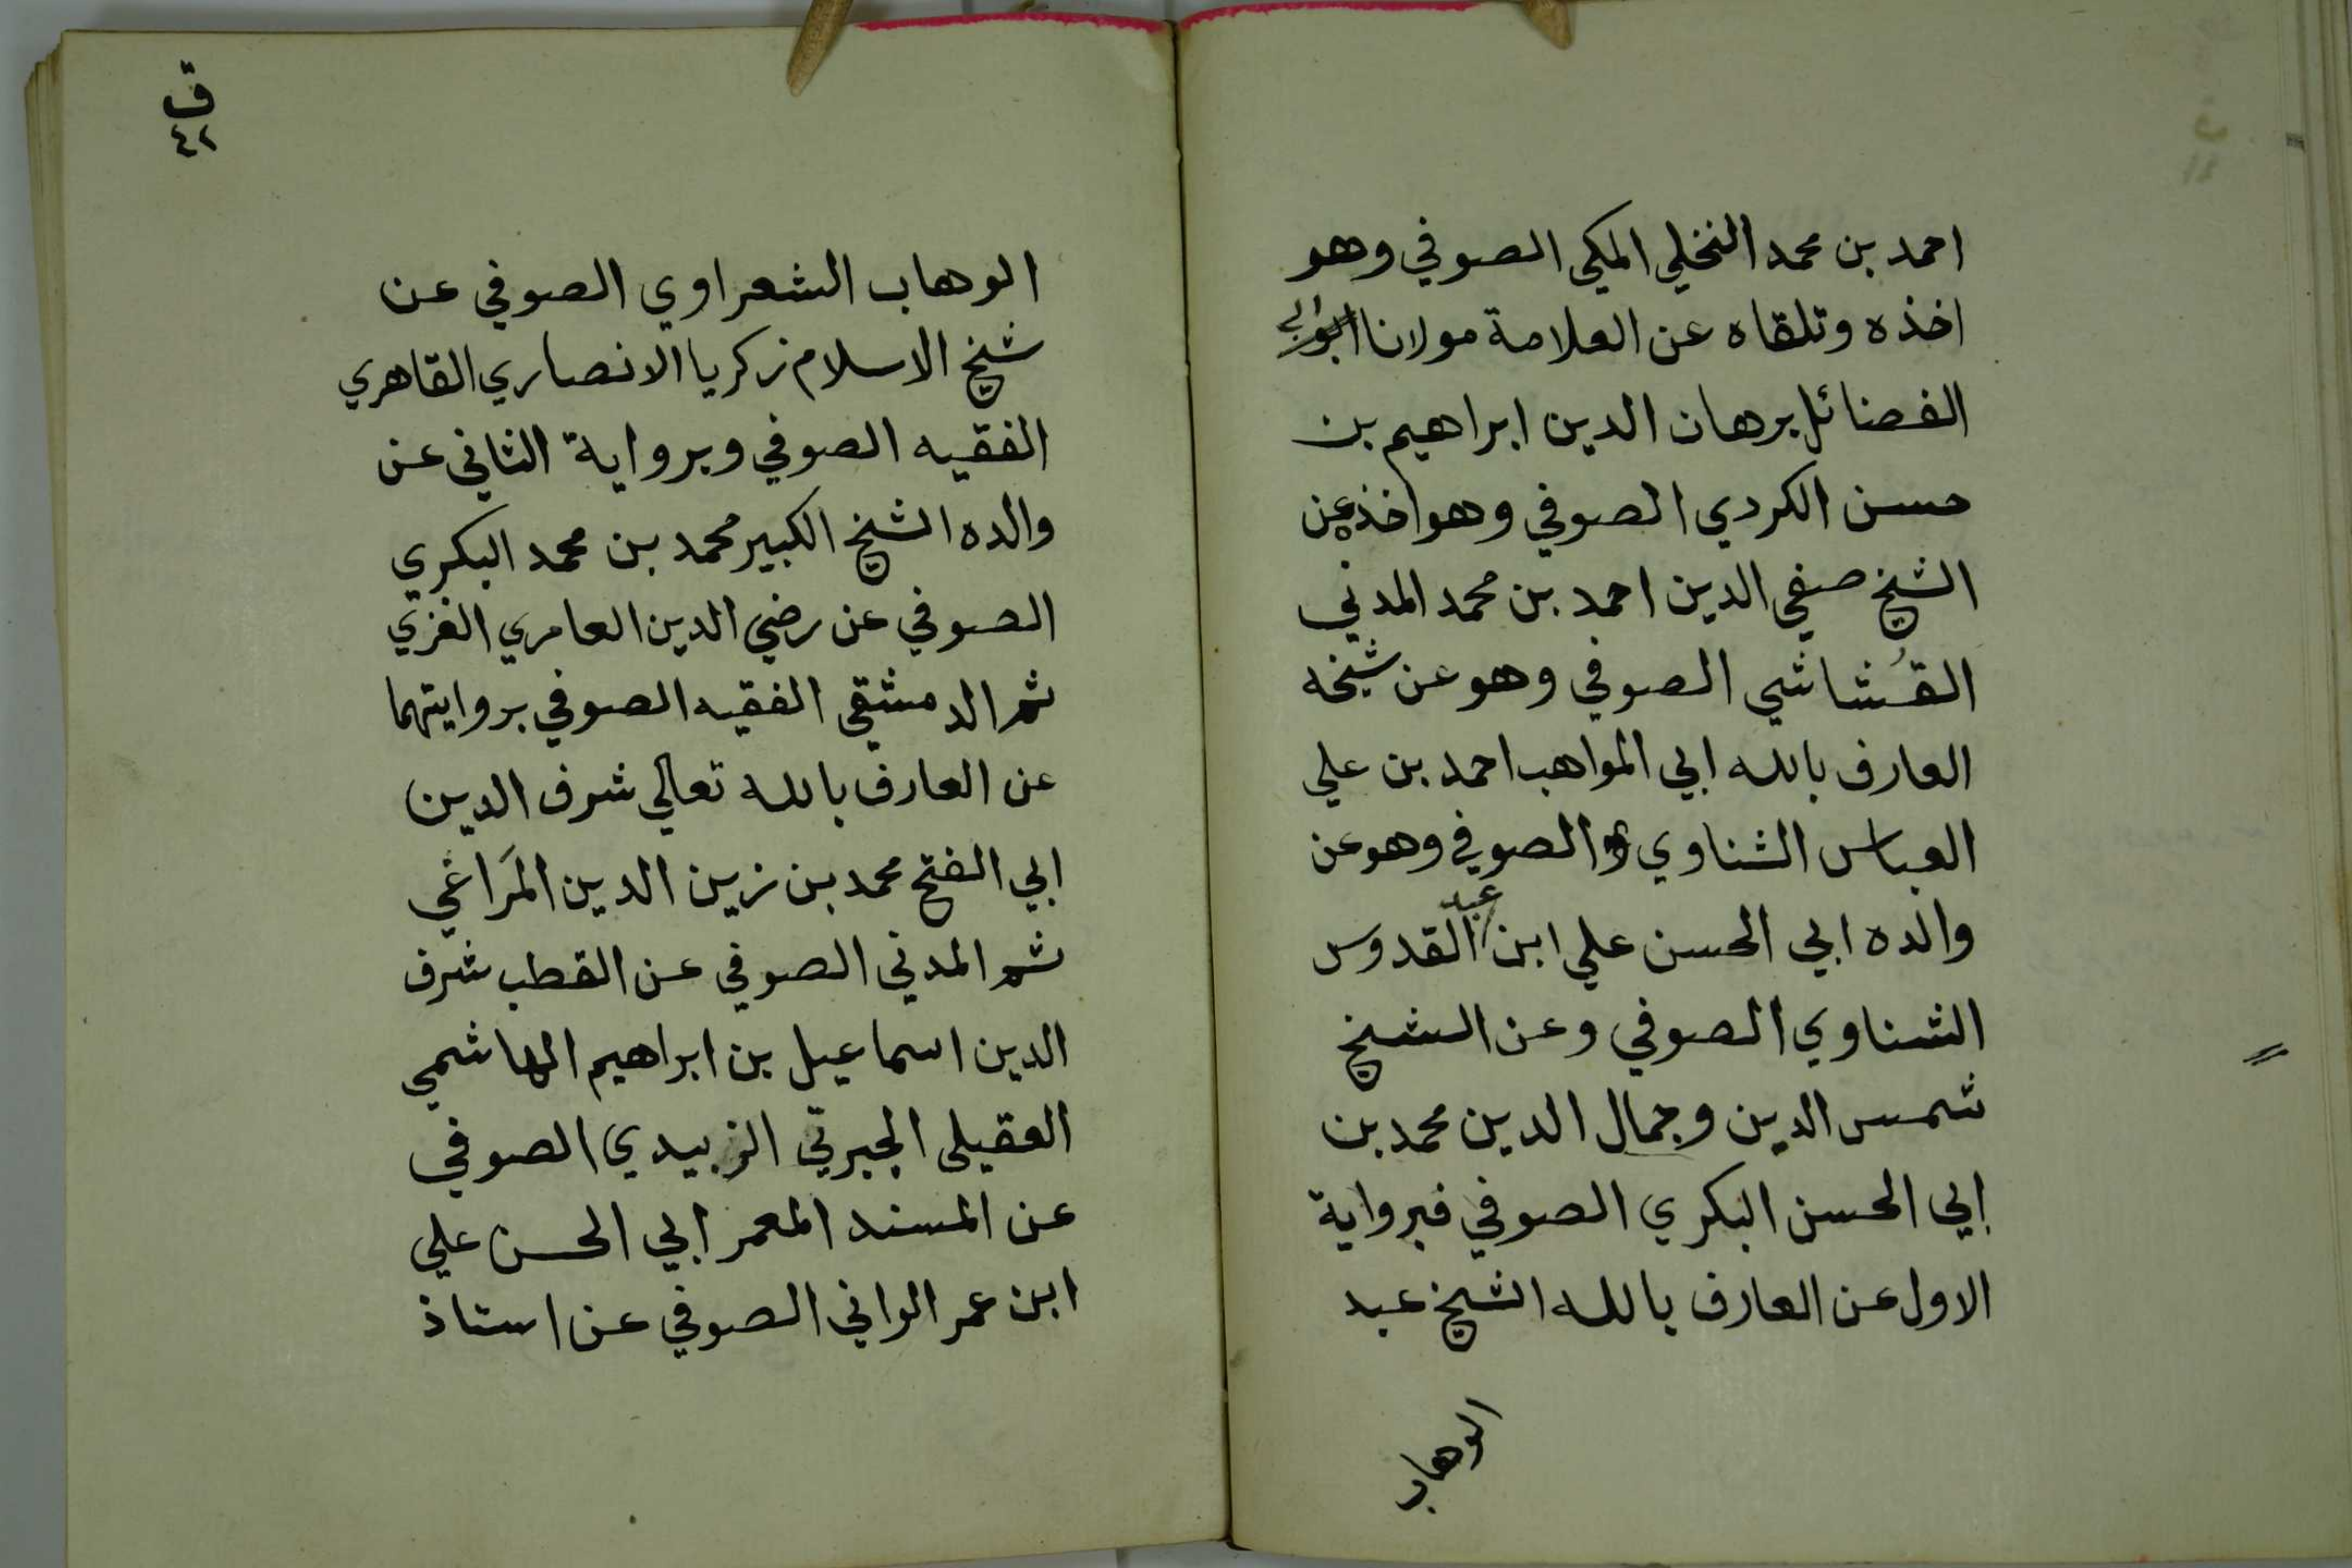 احمد بن محمد النخلي المكي الصوفي وهو
اخذه وتلقاه عن العلامة مولانا ابي
الفضائل برهان الدين ابراهيم بن
حسن الكردي الصوفي وهو اخذه عن
الشيخ صفي الدين احمد بن محمد المدني
القُشاشي الصوفي وهو عن شيخه
العارف بالله ابي المواهب احمد بن علي
العباس الشناوي الصوفي وهو عن
والده ابي الحسن علي ابن عبد القدوس
الشناوي الصوفي وعن الشيخ
شمس الدين وجمال الدين محمد بن
ابي الحسن البكري الصوفي فبرواية
الاول عن العارف بالله الشيخ عبد
الوهاب
ق
٤٢
الوهاب الشعراوي الصوفي عن
شيخ الاسلام زكريا الانصاري القاهري
الفقيه الصوفي وبرواية الثاني عن
والده الشيخ الكبير محمد بن محمد البكري
الصوفي عن رضي الدين العامري الغزي
ثم الدمشقي الفقيه الصوفي بروايتهما
عن العارف بالله تعالي شرف الدين
ابي الفتح محمد بن زين الدين المَراغي
ثم المدني الصوفي عن القطب شرف
الدين اسماعيل بن ابراهيم الهاشمي
العقيلي الجبرتي الزبيدي الصوفي
عن المسند المعمر ابي الحسن علي
ابن عمر الواني الصوفي عن استاذ